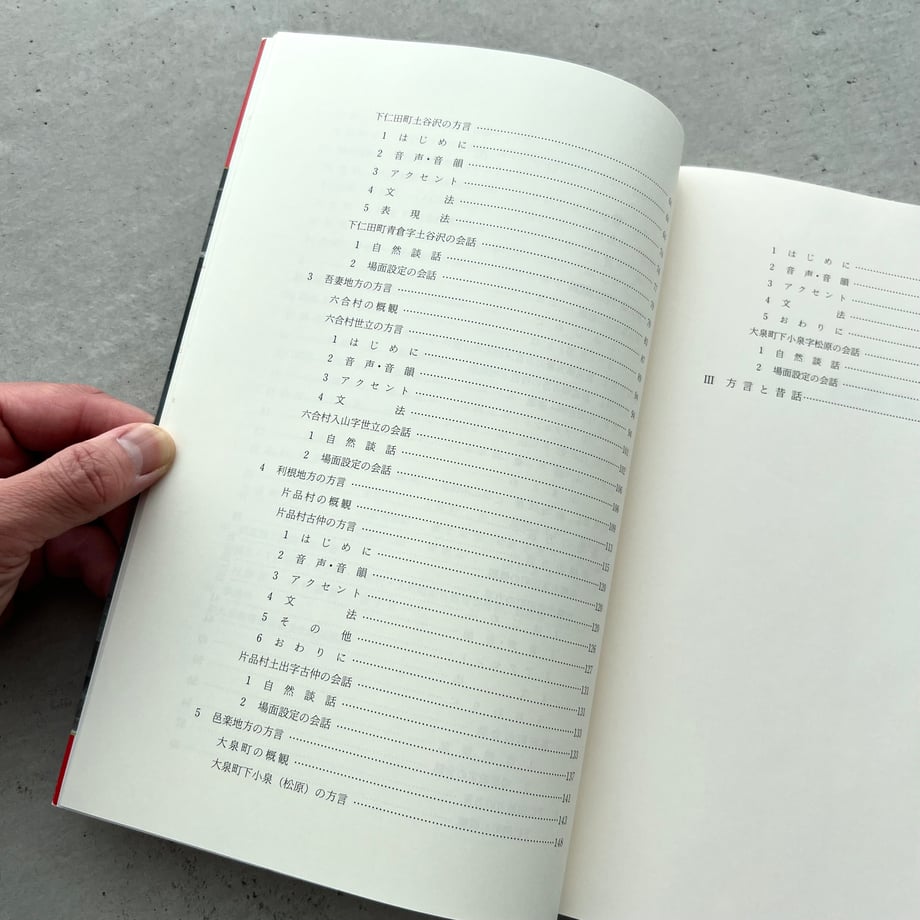 下仁田町土谷沢の方言
1 はじめに
2 音声・音韻
3 アクセント
4 文法
5 表現法
下仁田町青倉字土谷沢の会話
1 自然談話
2 場面設定の会話
3 吾妻地方の方言
六合村の概観
六合村世立の方言
1 はじめに
2 音声・音韻
3 アクセント
4 文法
六合村入山字世立の会話
1 自然談話
2 場面設定の会話
4 利根地方の方言……111
片品村の概観……115
片品村古仲の方言……120
1 はじめに……120
2 音声・音韻……120
3 アクセント……126
4 文法
5 その他……131
6 おわりに……131
片品村土出字古仲の会話……133
1 自然談話……133
2 場面設定の会話……137
5 邑楽地方の方言……141
大泉町の概観……143
大泉町下小泉（松原）の方言……148
1 はじめに
2 音声・音韻
3 アクセント
4 文法
5 おわりに
大泉町下小泉字松原の会話
1 自然談話
2 場面設定の会話
Ⅲ 方言と昔話